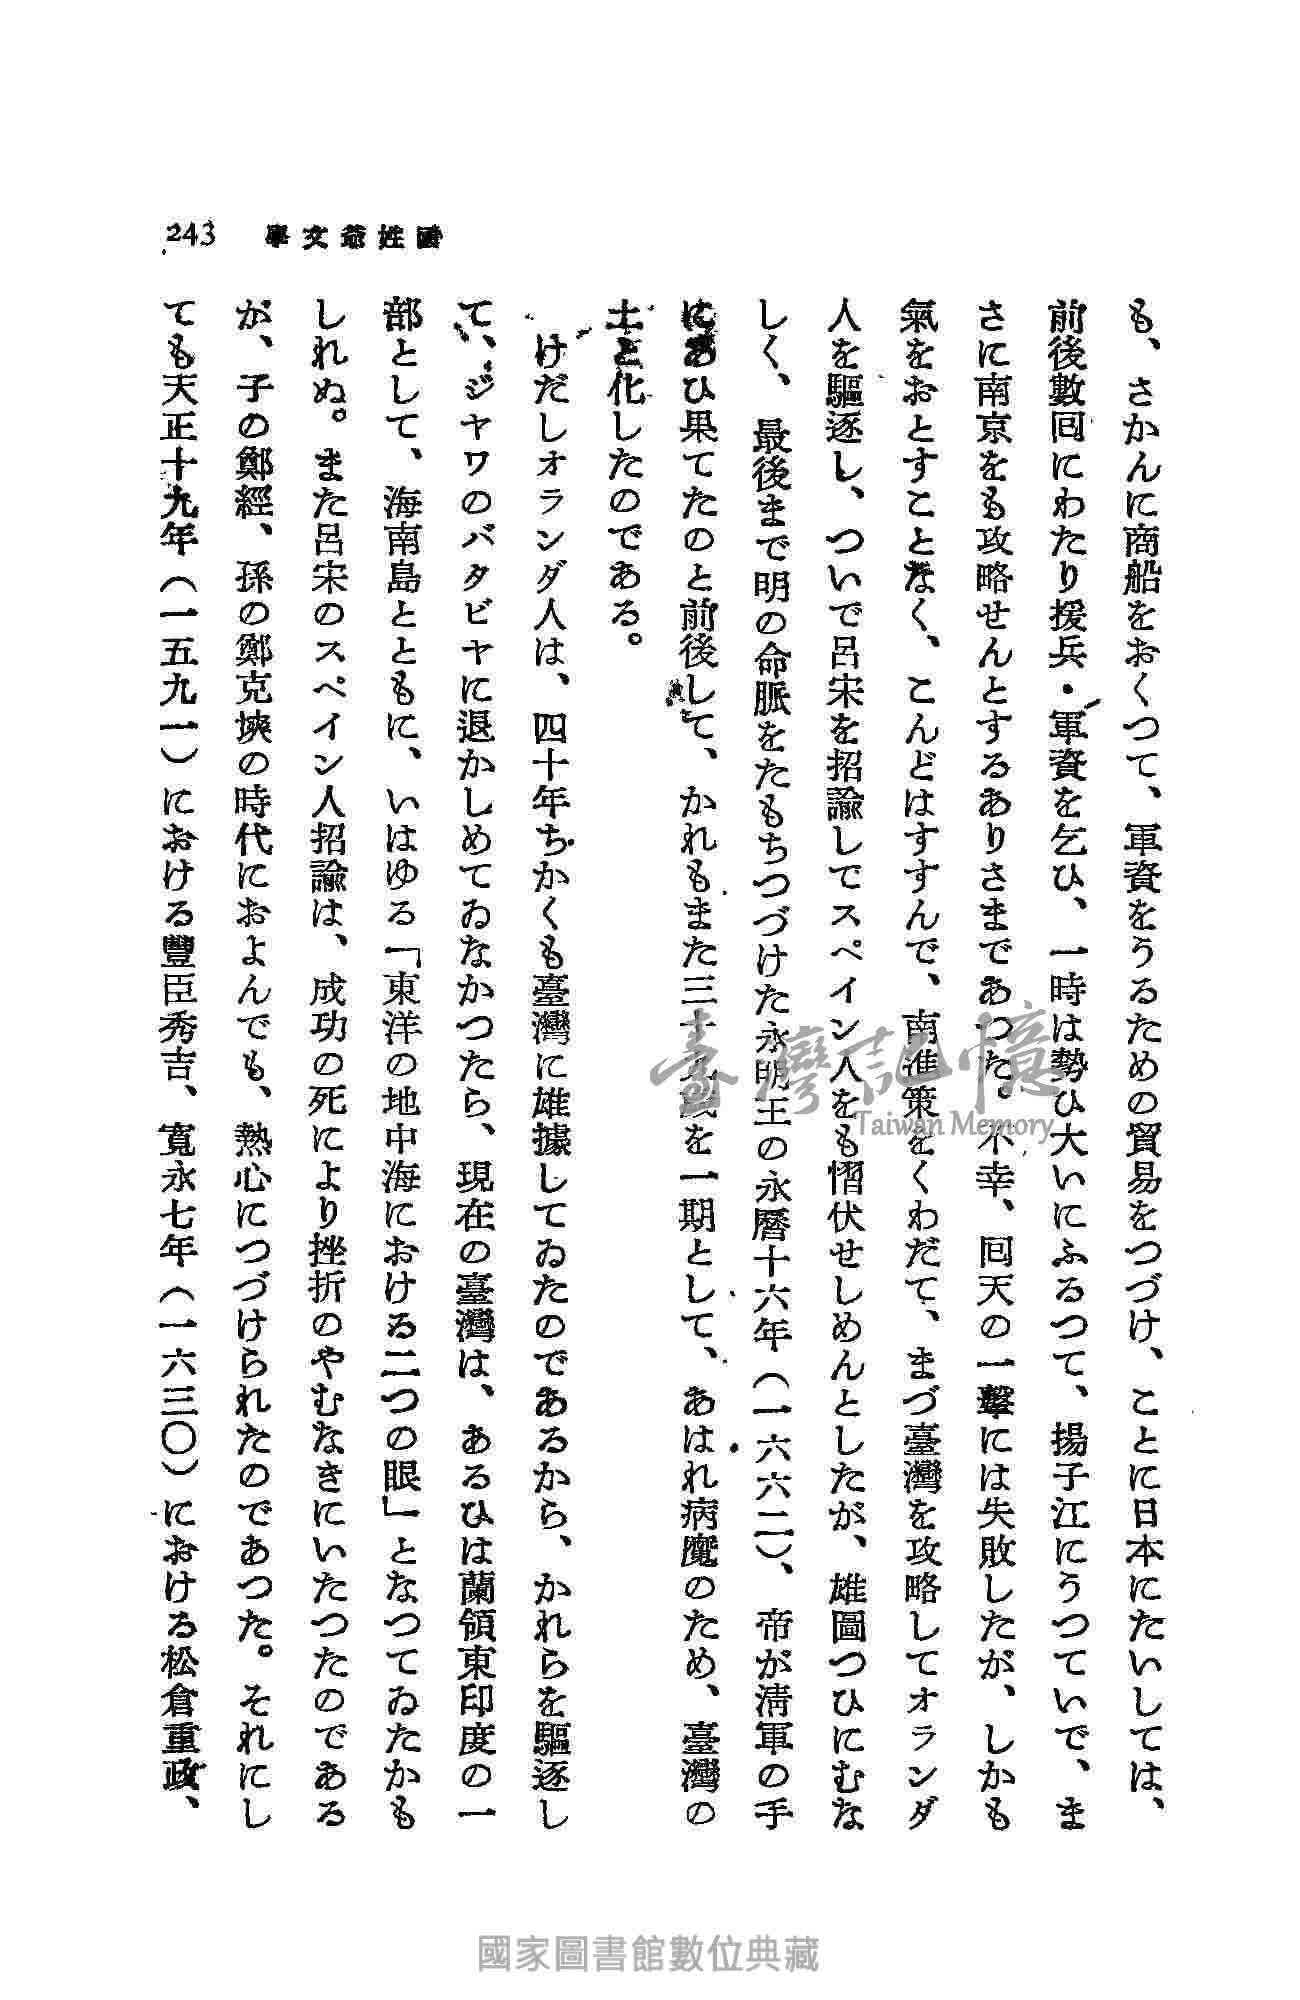 243 國姓爺文學
も、さかんに商船をおくつて、軍資をうるための貿易をつづけ、ことに日本にたいしては、
前後數囘にわたり援兵・軍資を乞ひ、一時は勢ひ大いにふるつて、揚子江にうつていで、ま
さに南京をも攻略せんとするありさまであつた。不幸、囘天の一擊には失敗したが、しかも
氣をおとすことなく、こんどはすすんで、南進策をくわだて、まづ臺灣を攻略してオランダ
人を驅逐し、ついで呂宋を招諭してスペイン人をも慴伏せしめんとしたが、雄圖つひにむな
しく、最後まで明の命脈をたもちつづけた永明王の永曆十六年（一六六二）、帝が淸軍の手
にあひ果てたのと前後して、かれもまた三十九歲を一期として、あはれ病魔のため、臺灣の
土と化したのである。
けだしオランダ人は、四十年ちかくも臺灣に雄據してゐたのであるから、かれらを驅逐し
て、ジヤワのバタビヤに退かしめてゐなかつたら、現在の臺灣は、あるひは蘭領東印度の一
部として、海南島とともに、いはゆる「東洋の地中海における二つの眼」となつてゐたかも
しれぬ。また呂宋のスペイン人招諭は、成功の死により挫折のやむなきにいたつたのである
が、子の鄭經、孫の鄭克塽の時代におよんでも、熱心につづけられたのであつた。それにし
ても天正十九年（一五九一）における豐臣秀吉、寬永七年（一六三〇）における松倉重政、
臺灣記憶
Taiwan Memory
國家圖書館數位典藏